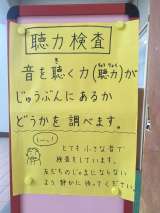 聴力検査
音を聴く力(聴力)が
じゅうぶんにあるか
どうかを調べます。
とても小さな音で
検査をしています。
友だちのじゃまにならない
よう静かに待ってください。